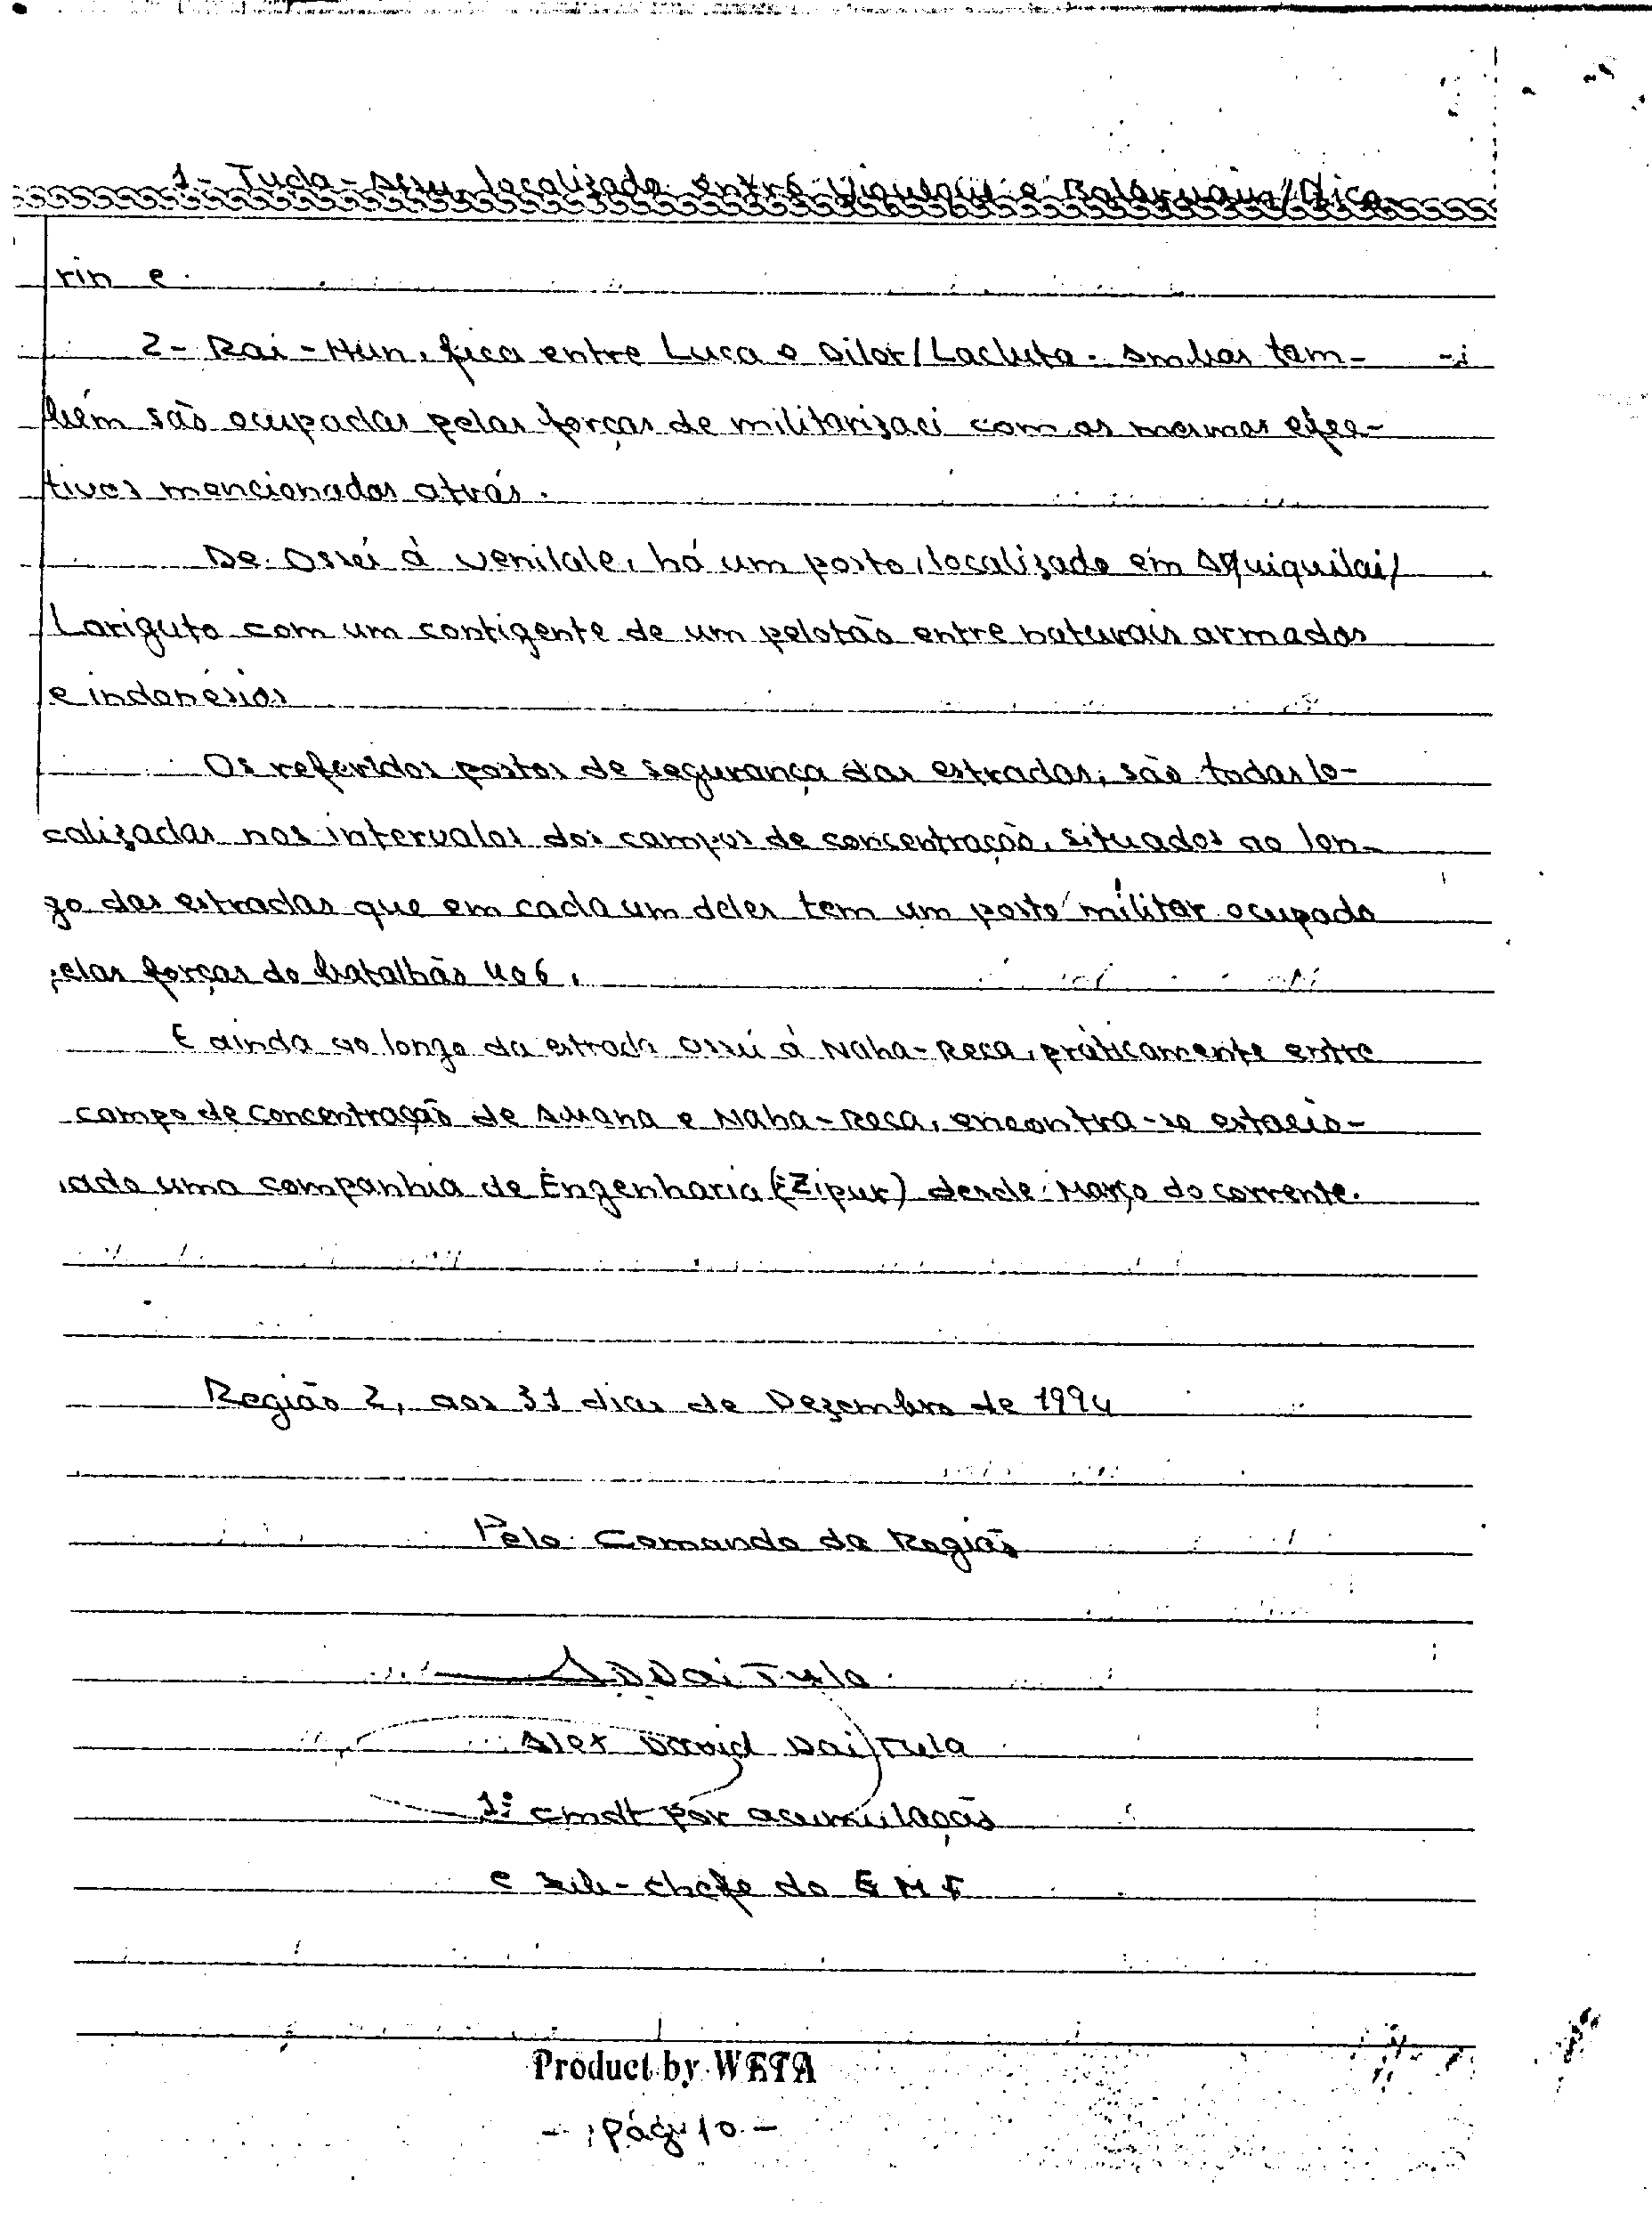 1- Tuda- localizada entre Viqueque e
rin e
2- Rai-Hun, fica entre Luca e Dilor/Lacluta. Ambas tam-
bém são ocupadas pelas forças de militarizaci com os mesmos efec-
tivos mencionados atrás.
De Ossú à Venilale, há um posto, localizado em Aquiquilai/
Lariguto com um contigente de um pelotão entre naturais armados
e indonésios
Os referidos postos de segurança das estradas, são todas lo-
calizadas nos intervalos dos campos de concentração, situados ao lon-
go das estradas que em cada um deles tem um posto militar ocupado
pelas forças do batalhão 406.
E ainda ao longo da estrada Ossú à Naha-Reca, práticamente entre
campo de concentração de Auana e Naha-Reca, encontra-se estacio-
nado uma companhia de Engenharia (Zipur) desde Março do corrente.
Região 2, aos 31 dias de Dezembro de 1994
Pelo Comando da Região
ADDaiTula
Alex David DaiTula
1º cmdt por acumulação
e sub-chefe do EMF
Product by WETA
- pág 10 -